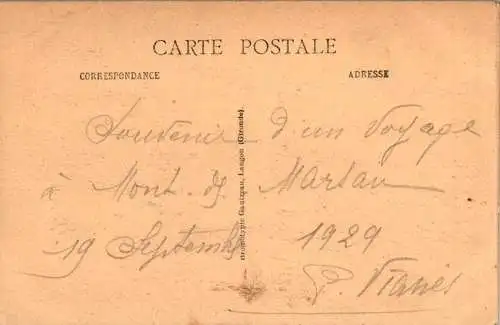 CARTE POSTALE
CORRESPONDANCE ADRESSE
Souvenir d'un Voyage
à Mont de Marsan
19 Septembre 1929
P. Vianès
Phototypie Gautreau, Langon (Gironde).